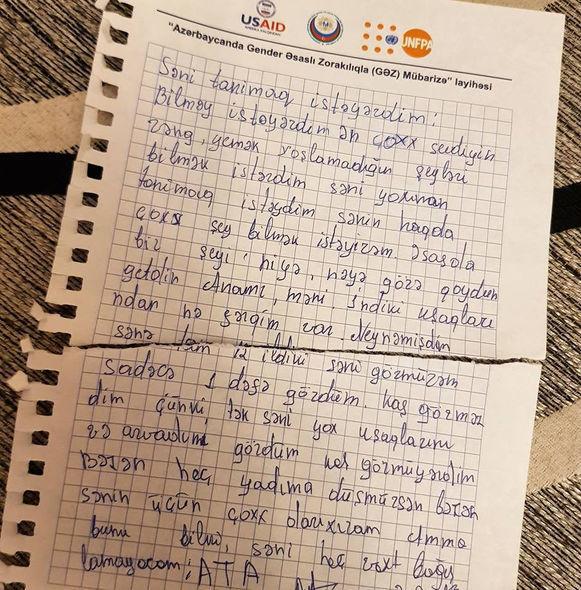 USAID
UNFPA
"Azərbaycanda Gender Əsaslı Zorakılıqla (GƏZ) Mübarizə" layihəsi
Səni tanımaq istəyərdim!
Bilməy istəyərdim ən çoxx sevdiyin
rəng, yemək xoşlamadığın şeyləri
bilmək istərdim səni yaxınnan
tanımaq istəydim sənin haqda
çoxx şey bilmək istəyirəm. Əsasda
bir şeyi, niyə, nəyə görə qoydun
getdin Anamı, məni. İndiki uşaqları
ndan nə fərqim var. Neynəmişdim
sənə tam 12 ildiki səni görmürəm
Sadəcə 1 dəfə gördüm. Kaş görməz
dim çünki tək səni yox uşaqlarını
və arvadını gördüm kaş görmuyərdim
Bəzən heç yadıma düşmürsən bəzən
sənin üçün çoxx darıxıram Amma
bunu bilki, səni heç vaxt bağış
lamayacam! ATA